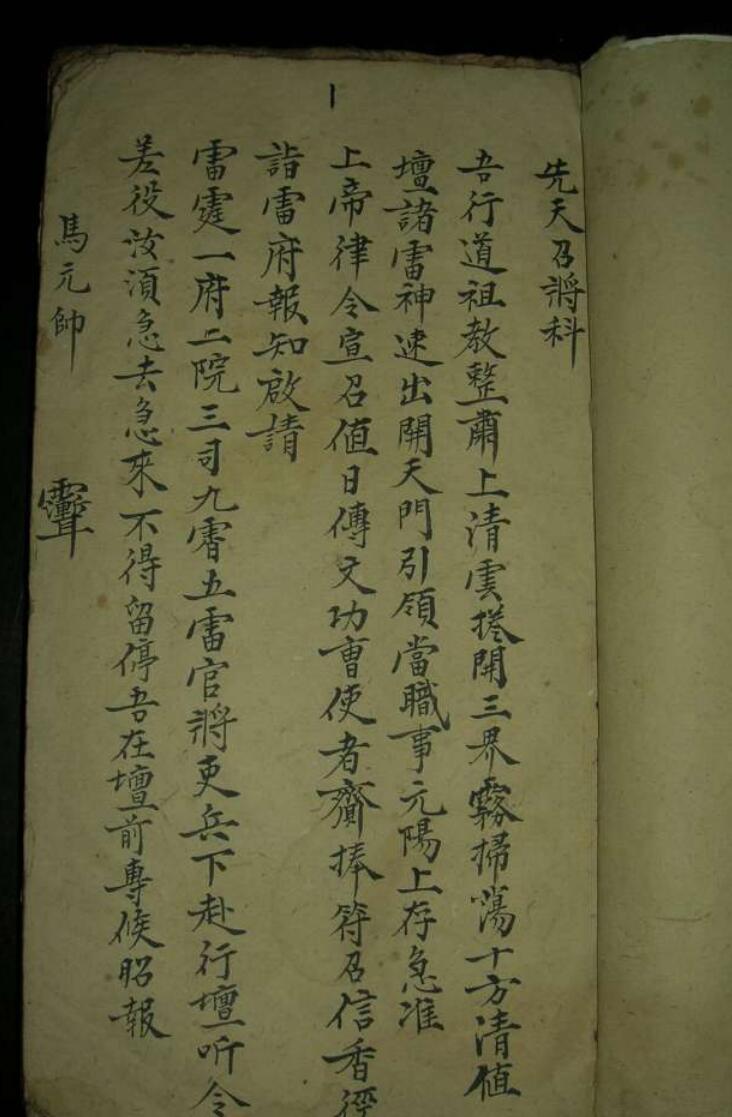 先天召將科
吾行道祖教整肅上清雲捲開三界霧掃蕩十方清值
壇諸雷神速出開天門引領當職事元陽上存急准
上帝律令宣召值日傳文功曹使者齎捧符召信香徑
詣雷府報知啟請
雷霆一府二院三司九霄五雷官將吏兵下赴行壇听令
差役汝須急去急來不得留停吾在壇前專候昭報
馬元帥